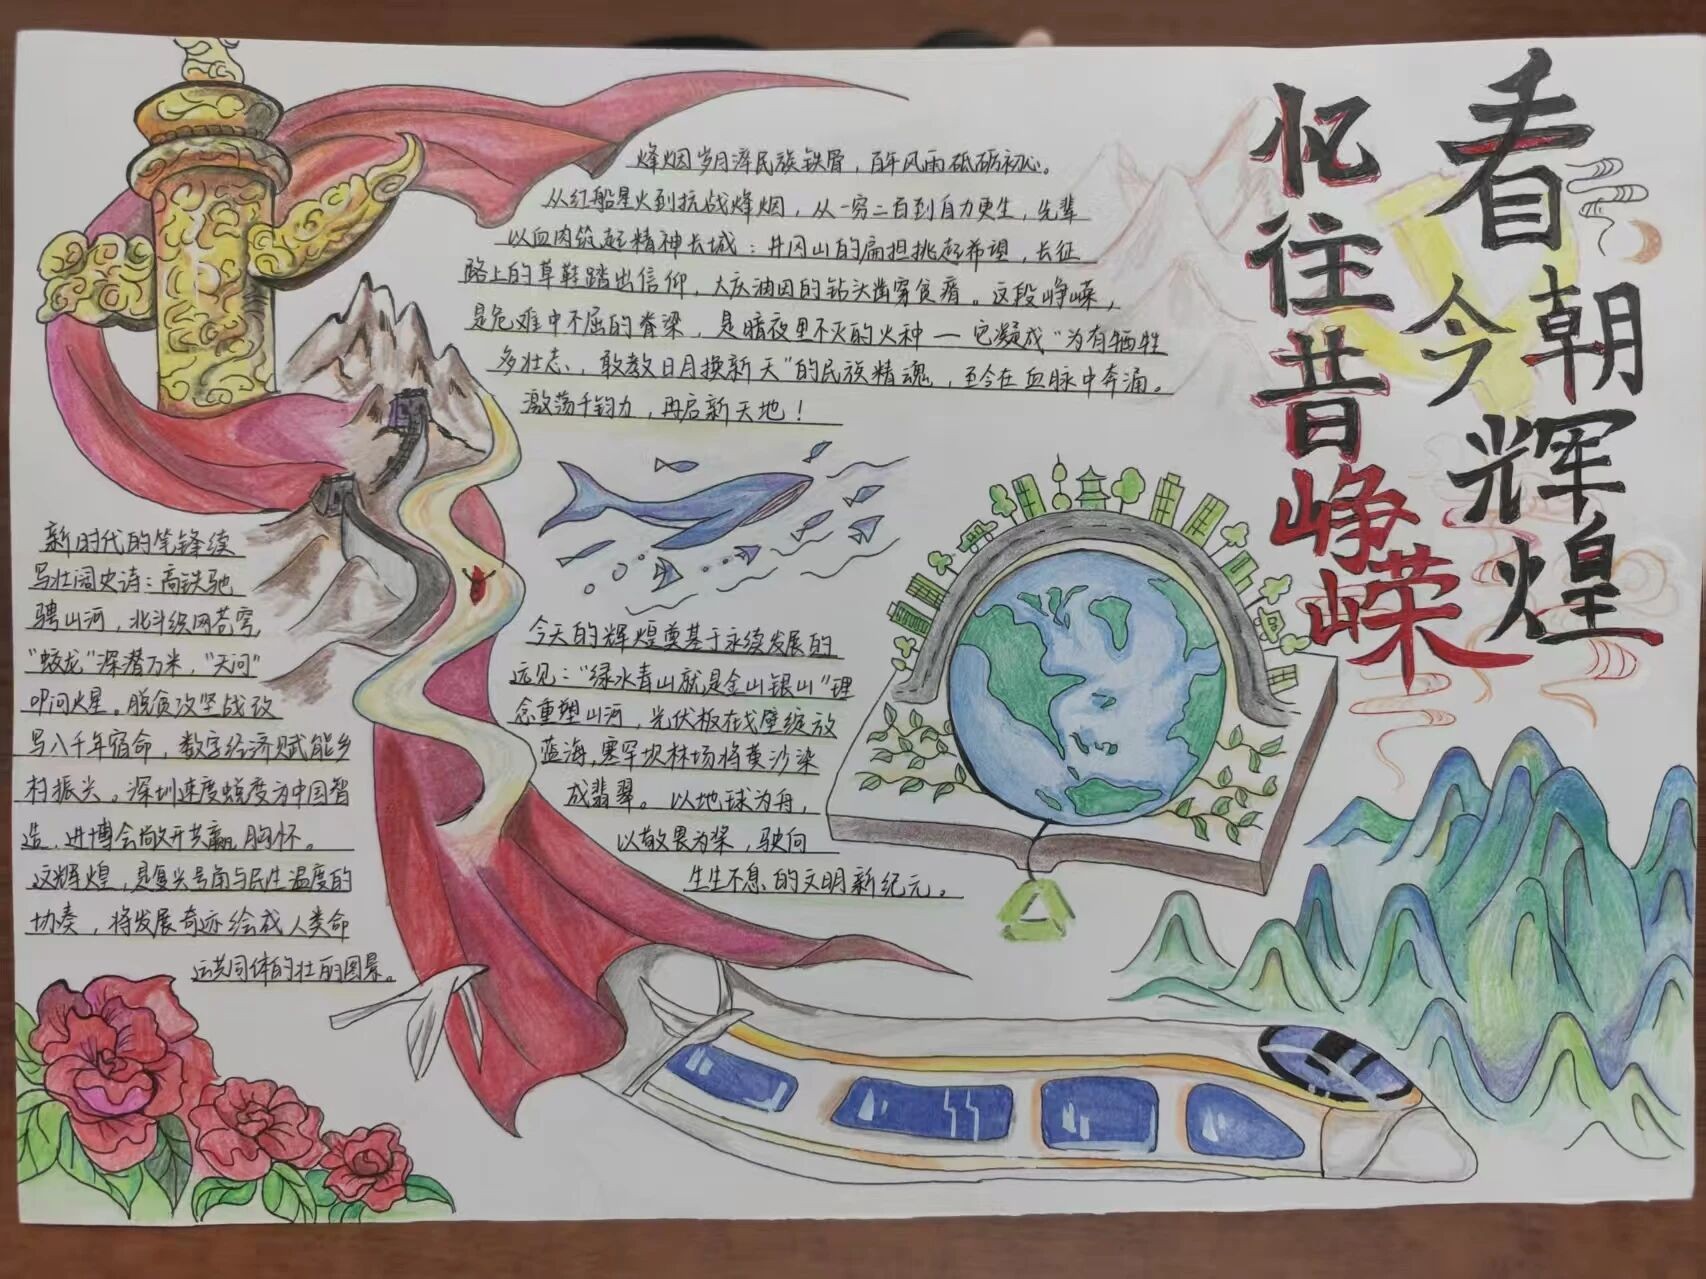 忆往昔峥嵘
看今朝辉煌
烽烟岁月淬民族铁骨，百年风雨砥砺初心。
从红船星火到抗战烽烟，从一穷二白到自力更生，先辈
以血肉筑起精神长城：井冈山的扁担挑起希望，长征
路上的草鞋踏出信仰，大庆油田的钻头凿穿贫瘠。这段峥嵘，
是危难中不屈的脊梁，是暗夜里不灭的火种—它凝成“为有牺牲
多壮志，敢教日月换新天”的民族精魂，至今在血脉中奔涌。
激荡千钧力，再启新天地！
新时代的笔锋续
写壮阔史诗：高铁驰
骋山河，北斗织网苍穹，
“蛟龙”深潜万米，“天问”
叩问火星。脱贫攻坚战改
写八千年宿命，数字经济赋能乡
村振兴。深圳速度蜕变为中国智
造，进博会敞开共赢胸怀。
这辉煌，是复兴号角与民生温度的
协奏，将发展奇迹绘成人类命
运共同体的壮丽图景。
今天的辉煌奠基于永续发展的
远见：“绿水青山就是金山银山”理
念重塑山河，光伏板在戈壁绽放
蓝海，塞罕坝林场将黄沙染
成翡翠。以地球为舟，
以敬畏为桨，驶向
生生不息的文明新纪元。